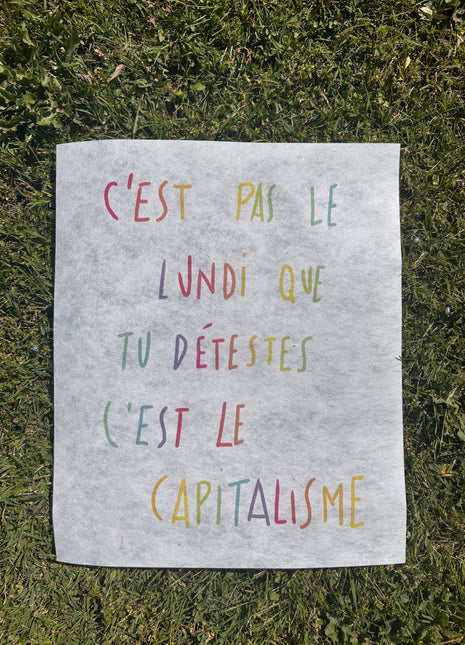 C'EST PAS LE
LUNDI QUE
TU DÉTESTES
C'EST LE
CAPITALISME